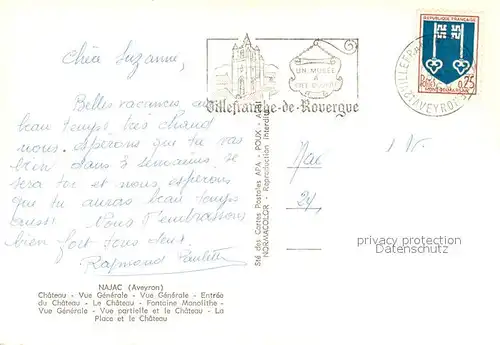 Chère Suzanne,
Belles vacances, du
beau temps, très chaud
nous. Espérons que tu vas
bien dans 3 semaines, se
sera toi et nous espérons
que tu auras beau temps
aussi. Nous t'embrassons
bien fort tous deux.
Raymond
NAJAC (Aveyron)
Château - Vue Générale - Vue Générale - Entrée
du Château - Le Château - Fontaine Monolithe -
Vue Générale - Vue partielle et le Château - La
Place et le Château
Sté des Cartes Postales APA - POUX - ALBI
NORMACOLOR - Reproduction interdite
UN MUSÉE
A
CIEL OUVERT
Villefranche-de-Rovergue
REPUBLIQUE FRANCAISE
Postes 0,25
MONT-DE-MARSAN
VILLEFRA
AVEYRON
24
protected by copyright